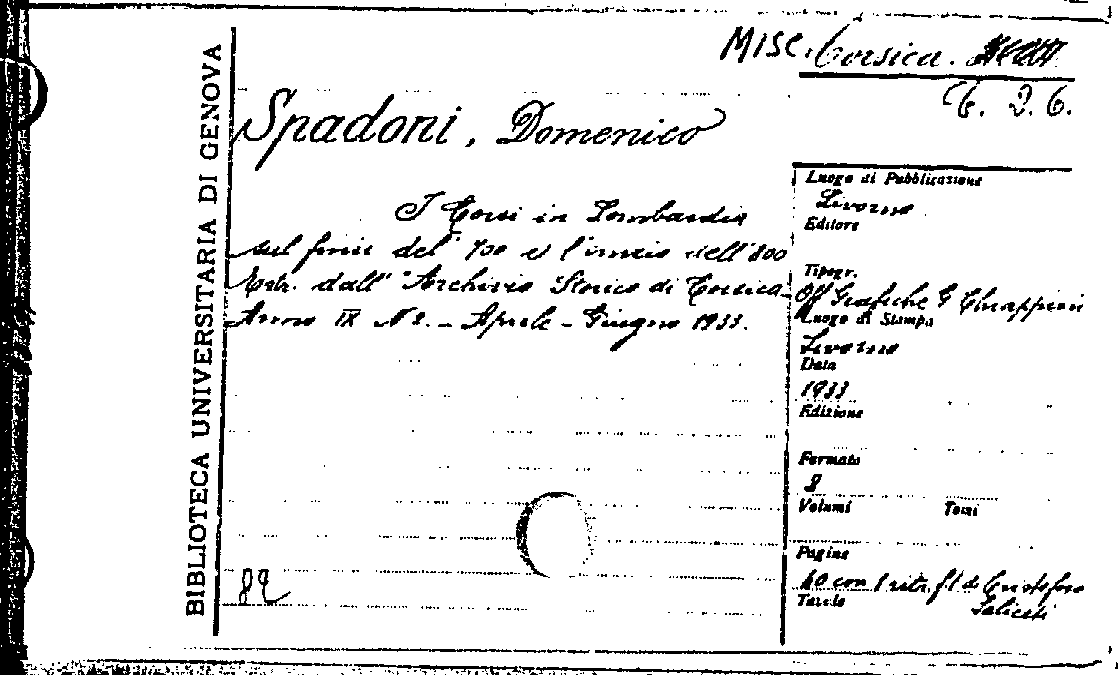 BIBLIOTECA UNIVERSITARIA DI GENOVA
MISC. Corsica.
C. 2. 6.
Spadoni, Domenico
I Corsi in Lombardia
sul finir del '700 e l'inizio dell'800
Estr. dall' "Archivio Storico di Corsica"
Anno IX N 2. - Aprile - Giugno 1933.
82
Luogo di Pubblicazione
Livorno
Editore
Tipogr.
Off Grafiche G Chiappini
Luogo di Stampa
Livorno
Data
1933
Edizione
Formato
8
Volumi Tomi
Pagine
40 con 1 ritr. f.t. di Cristoforo
Tavole
Saliceti